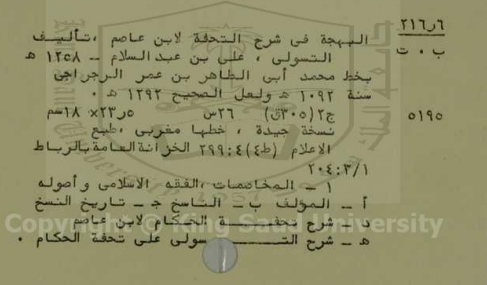 ٢١٦ر٦
ب ٠ ت
البهجة فى شرح التحفة لابن عاصم ،تأليف
التسولى ، على بن عبدالسلام ــ ١٢٥٨ هـ
بخط محمد أبى الطاهر بن عمر الرجراجى
سنة ١٠٩٢ هـ ولعل الصحيح ١٢٩٢ هـ ٠
٥١٩٥
ج٢(٣٠٥ق) ٢٦س ٢٣ر٥× ١٨سم
نسخة جيدة ، خطها مغربى ،طبع
الاعلام (ط٤) ٢٩٩:٤ الخزانةالعامةبالرباط
٢٠٤:٣/١
١ ــ المخاصمات ،الفقه الاسلامى وأصوله
أ ــ المؤلف ب ــ الناسخ جـ ــ تاريخ النسخ
د ــ شرح تحفـــة الحكام لابن عاصم
هـ ــ شرح التـــسولى على تحفة الحكام ٠
Copyright © King Saud University